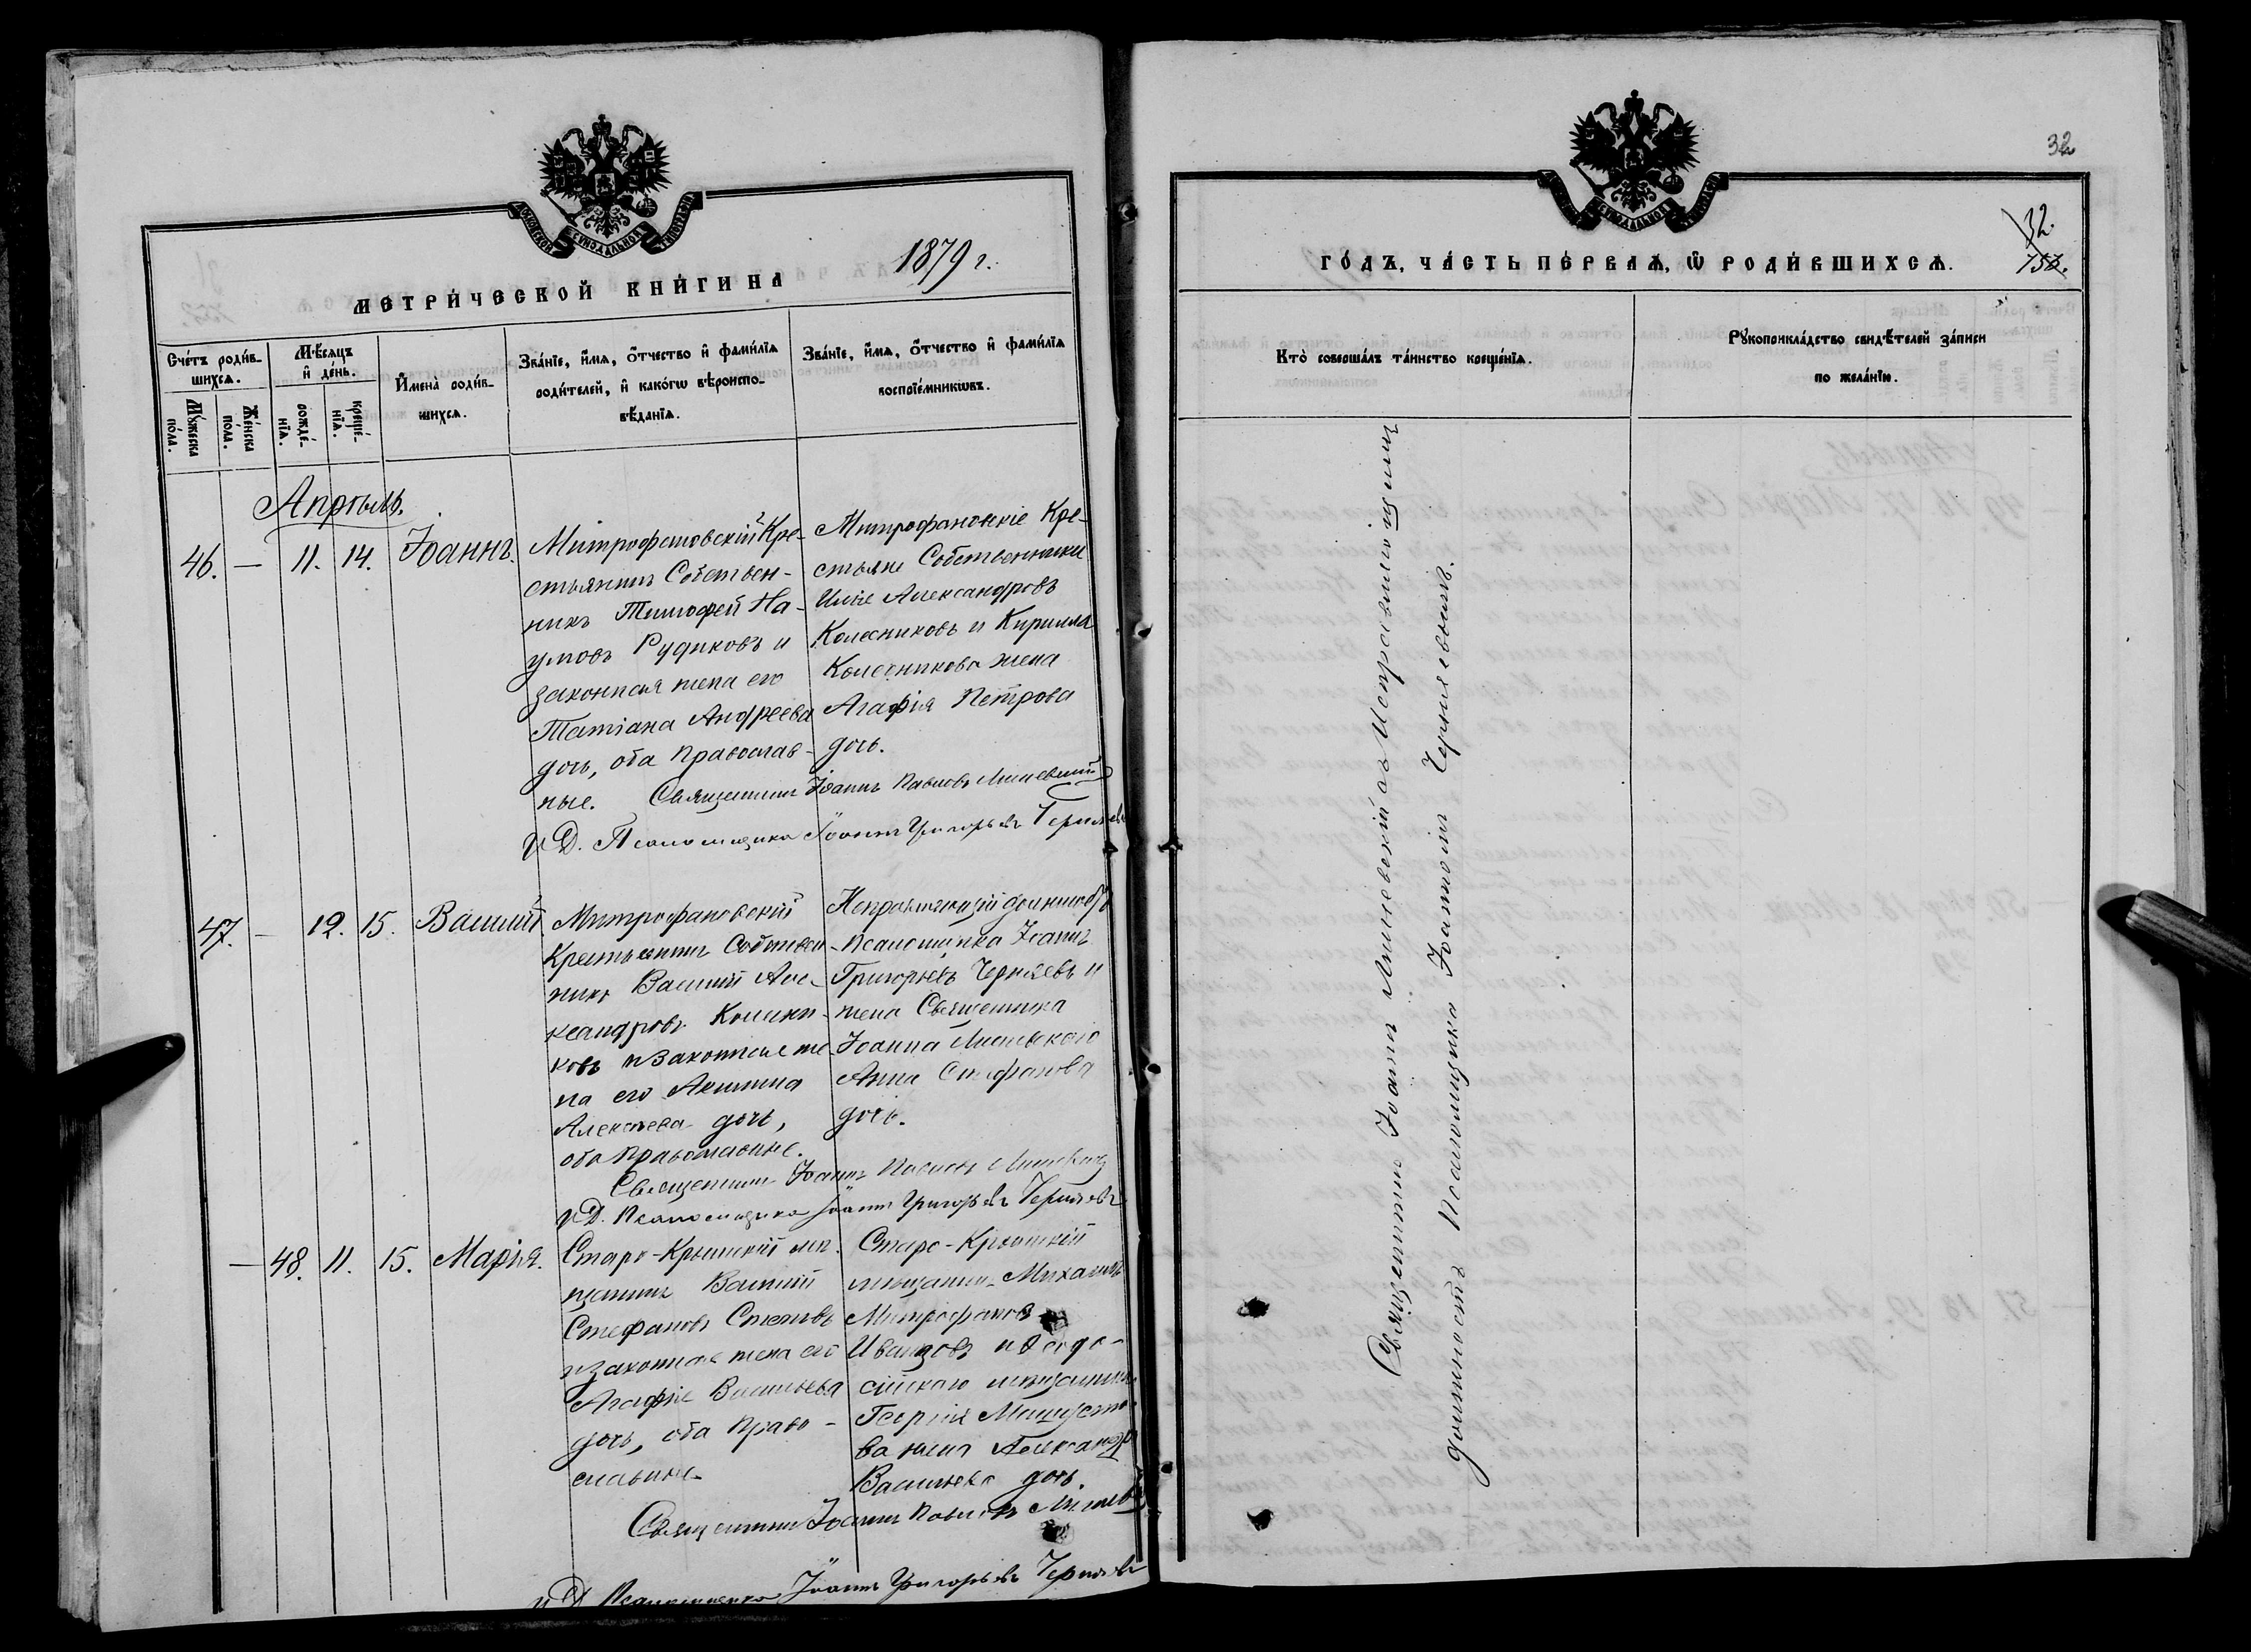 МЕТРИ́ЧЕСКОЙ КНИ́ГИ НА 1879 г.
Сче́тъ роди́в-
шихсѧ.
Мѹ́жеска
по́ла.
Же́нска
по́ла.
Мѣ́сѧцъ
и҆ де́нь.
рожде́-
нїѧ.
креще́-
нїѧ.
И҆мена̀ роди́в-
шихсѧ.
Зва́нїе, и҆́мѧ, ѻ҆́тчество и҆ фами́лїѧ
роди́телей, и҆ како́гѡ вѣроиспо-
вѣ́данїѧ.
Зва́нїе, и҆́мѧ, ѻ҆́тчество и҆ фами́лїѧ
воспрїе́мникѡвъ.
Апрѣль.
46. — 11. 14. Іоаннъ.
Митрофановскій Кре-
стьянинъ Собствен-
никъ Тимофей На-
умовъ Рудиковъ и
законная жена его
Татіана Андреева
дочь, оба Православ-
ные.
Митрофановскіе Кре-
стьяне Собственники
Илія Александровъ
Колесниковъ и Кирилла
Колесникова жена
Агафія Петрова
дочь.
Священникъ Іоаннъ Павловъ
И Д. Псаломщика Іоаннъ Григорьевъ Черняевъ
47. — 12. 15. Василій
Митрофановскій
Крестьянинъ Собствен-
никъ Василій Але-
ксандровъ Колесни-
ковъ и законная же-
на его Акилина
Алексѣева дочь,
оба православные.
Исправляющій должность
Псаломщика Іоаннъ
Григорьевъ Черняевъ и
жена Священника
Іоанна
Анна Стефанова
дочь.
Священникъ Іоаннъ Павловъ
И Д. Псаломщика Іоаннъ Григорьевъ Черняевъ
— 48. 11. 15. Марія.
Старо-Крымскій мѣ-
щанинъ Василій
Стефановъ
и законная жена его
Агафія Васильева
дочь, оба Право-
славные.
Старо-Крымскій
мѣщанинъ Михаилъ
Митрофановъ
Иванцовъ и Ѳеодо-
сійскаго мѣщанина
Георгія
ва жена Александра
Васильева дочь.
Священникъ Іоаннъ Павловъ
И Д. Псаломщика Іоаннъ Григорьевъ Черняевъ
32
32.
ГО́ДЪ, ЧА́СТЬ ПЕ́РВАѦ, Ѡ҆ РОДИ́ВШИХСѦ.
Кто̀ соверша́лъ та́инство креще́нїѧ.
Рѹкоприкла́дство свидѣ́телей за́писи
по жела́нїю.
Священникъ Іоаннъ съ Исправляющимъ
должность Псаломщика Іоанномъ Черняевымъ.